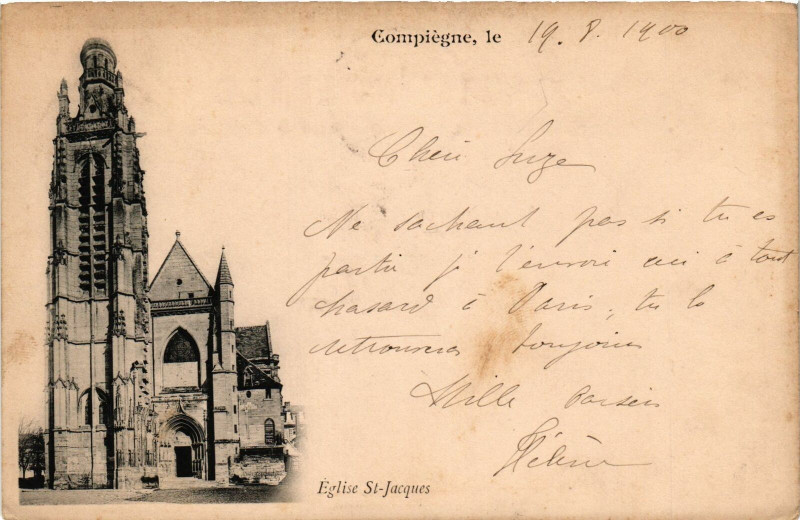 Compiègne, le 19. 8. 1900
Chère Suze
Ne sachant pas si tu es
partie je t'envoie ceci à tout
hasard à Paris, tu la
retrouveras toujours
Mille baisers
Hélène
Eglise St-Jacques